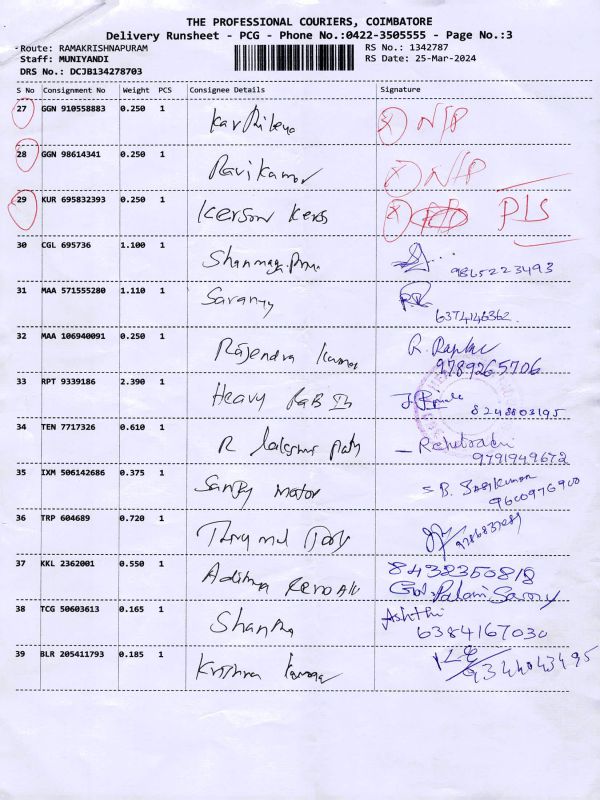 THE PROFESSIONAL COURIERS, COIMBATORE
Delivery Runsheet - PCG - Phone No.:0422-3505555 - Page No.:3
Route: RAMAKRISHNAPURAM RS No.: 1342787
Staff: MUNIYANDI RS Date: 25-Mar-2024
DRS No.: DCJB134278703
S No Consignment No Weight PCS Consignee Details Signature
27 GGN 910558883 0.250 1
28 GGN 98614341 0.250 1 Ravikumar
29 KUR 695832393 0.250 1 PLS
30 CGL 695736 1.100 1 9865223493
31 MAA 571555280 1.110 1 Sarany 6374146362
32 MAA 106940091 0.250 1 Rajendra Kumar 9789265706
33 RPT 9339186 2.390 1 Heavy 8248803195
34 TEN 7717326 0.610 1 R 9791949672
35 IXM 506142686 0.375 1 Motor 9600976900
36 TRP 604689 0.720 1
37 KKL 2362001 0.550 1 8432350818
38 TCG 50603613 0.165 1 6384167030
39 BLR 205411793 0.185 1 Krishna Kumar 9344043495